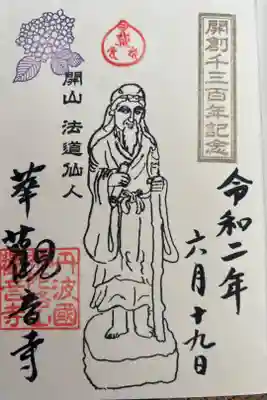 開創千三百年記念
令和二年
六月十九日
開山 法道仙人
華觀音寺
丹波國